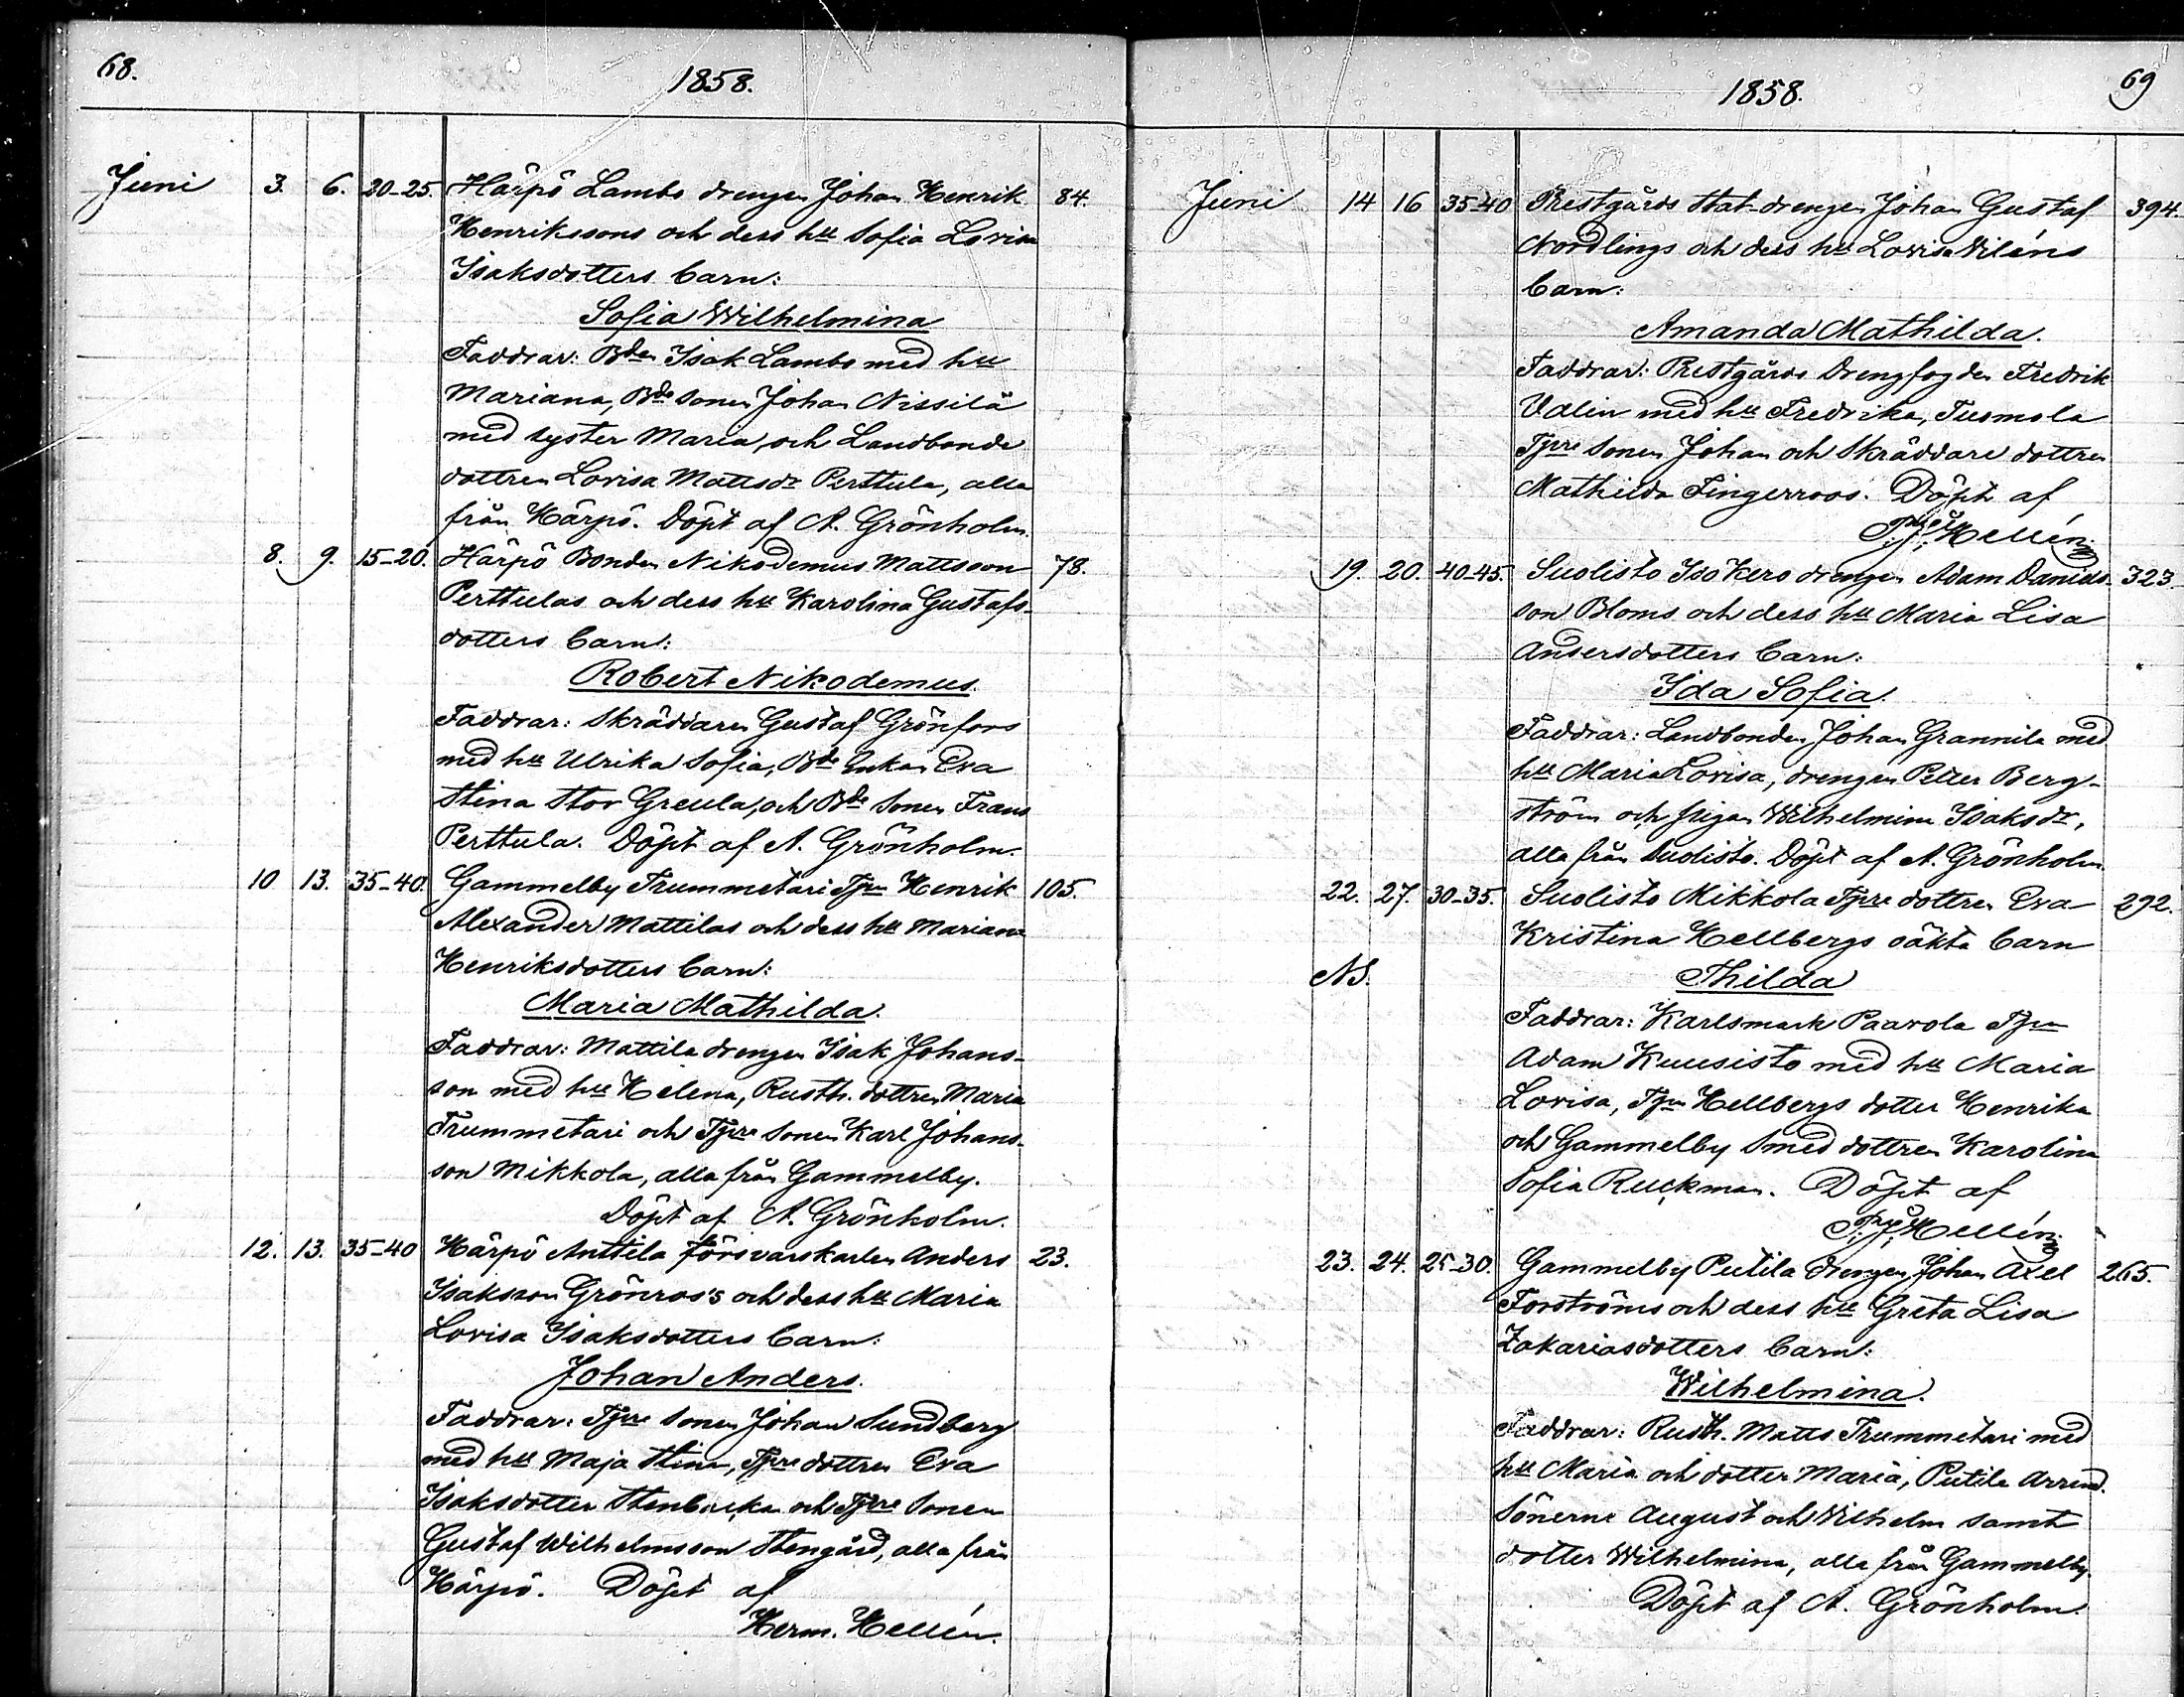 68.
1858.
Juni 3. 6. 20-25. Härpö Lambo drengen Johan Henrik 84.
Henrikssons och dess hu Sofia Lovisa
Isaksdotters barn:
Sofia Wilhelmina
Faddrar: Bden Isak Lambo med hu
Mariana, Bde sonen Johan Nissilä
med syster Maria, och Landbonde
dottren Lovisa Mattsdr Perttula, alla
från Härpö. Döpt af A. Grönholm.
8. 9. 15-20. Härpö Bonden Nikodemus Mattsson 78.
Perttulas och dess hu Karolina Gustafs-
dotters barn:
Robert Nikodemus.
Faddrar: Skräddaren Gustaf Grönfors
med hu Ulrika Sofia, Bde Enkan Eva
Stina Stor Greula, och Bde sonen Frans
Perttula. Döpt af A. Grönholm.
10 13. 35-40. Gammelby Trummetari Tjrn Henrik 105.
Alexander Mattilas och dess hu Mariana
Henriksdotters barn:
Maria Mathilda.
Faddrar: Mattila drengen Isak Johans-
son med hu Helena, Rusth. dottren Maria
Trummetari och Tjrre sonen Karl Johans-
son Mikkola, alla från Gammelby.
Döpt af A. Grönholm.
12. 13. 35-40 Härpö Anttila försvarskarlen Anders 23.
Isaksson Grönros's och dess hu Maria
Lovisa Isaksdotters barn:
Johan Anders.
Faddrar: Tjrre sonen Johan Sundberg
med hu Maja Stina, Tjrre dottren Eva
Isaksdotter Stenbacka och Tjrre sonen
Gustaf Wilhelmsson Stengård, alla från
Härpö. Döpt af
Herm. Hellén.
69
1858.
Juni 14 16 35-40 Prestgårds Stat-drengen Johan Gustaf 394.
Nordlings och dess hu Lovisa Viléns
barn:
Amanda Mathilda.
Faddrar: Prestgårds Drengfogden Fredrik
Valin med hu Fredrika, Tuomola
Tjrre sonen Johan och Skräddare dottren
Mathilda Fingerroos. Döpt af
Hellén.
19. 20. 40-45. Suolisto Iso Kero drengen Adam Daniels- 323
son Bloms och dess hu Maria Lisa
Andersdotters barn:
Ida Sofia.
Faddrar: Landbonden Johan Grannila med
hu Maria Lovisa, drengen Petter Berg-
ström och pigan Wilhelmina Isaksdr,
alla från Suolisto. Döpt af A. Grönholm.
22. 27. 30-35. Suolisto Mikkola Tjrre dottren Eva 292.
Kristina Hellbergs oäkta barn
Thilda
Faddrar: Karlsmark Paavola Tjrn
Adam Kuusisto med hu Maria
Lovisa, Tjrn Hellbergs dotter Henrika
och Gammelby Smed dottren Karolina
Sofia Ruckman. Döpt af
Hellén.
23. 24. 25-30. Gammelby Putila drengen Johan Axel 265.
Forströms och dess hu Greta Lisa
Zakariasdotters barn:
Wilhelmina.
Faddrar: Rusth. Matts Trummetari med
hu Maria och dotter Maria, Putila Arrend.
sönerne August och Vilhelm samt
dotter Wilhelmina, alla från Gammelby.
Döpt af A. Grönholm.